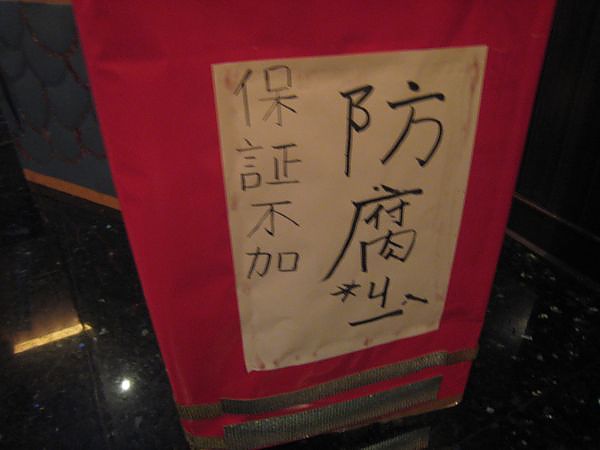 保証不加
防腐*ㄐㄧˋ